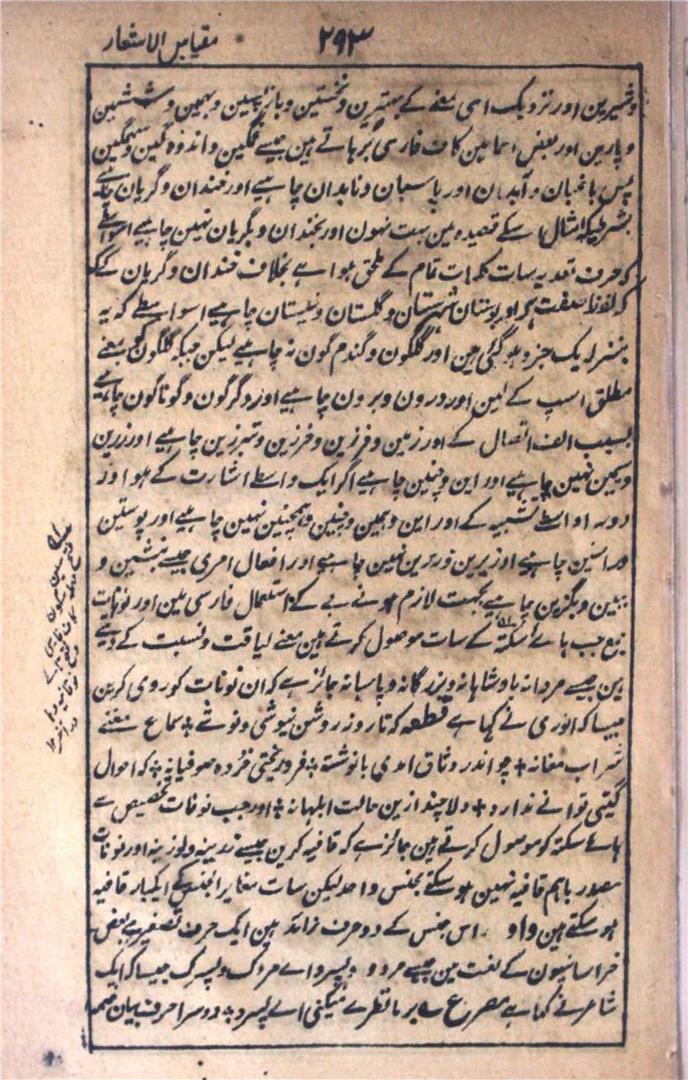 ۲۹۳ مقیاس الاشعار
وشیرین اور نزدیک اسی معنے کے بہترین و نخستین و بازپسین و بہمین و ششمین
و پارین اور بعض اسما مین کاف فارسی بڑہاتے ہین جیسے غمگین و اندوہگین و سہمگین
پس باغبان و آبدان اور پاسبان و نابدان چاہیے اور خندان و گریان چاہیے
بشرطیکہ امثال اسکے قصیدہ مین بہت نہون اور بخندان و بگریان نہین چاہیے اسواسطے
کہ حرف تعدیہ سات کلمات تمام کے ملحق ہوا ہے بخلاف خندان و گریان کے
کہ لفظا صفت ہے اور بوستان شہرستان و گلستان و نیستان چاہیے اسواسطے کہ یہ
بمنزلہ ایک جزو ہوگئی ہین اور گلگون و گندم گون نہ چاہیے لیکن جبکہ گلگون کو معنے
مطلق اسپ کے لین اور درون و برون چاہیے اور دگرگون و گوناگون چاہیے
بسبب الف اتصال کے اور زمین و فرزین و فرزین و تبرزین چاہیے اور زرین
و سیمین نہین چاہیے اور این و چنین چاہیے اگر ایک واسطے اشارت کے ہو اور
دوسرا واسطے تشبیہ کے اور این و ہمین و چنین و ہمچنین نہین چاہیے اور پوستین
و راستین چاہیے اور زیرین و زبرین نہین چاہیے اور افعال امری جیسے نشین و
ببین و بگزین چاہیے بجہت لازم ہونے بے کے استعمال فارسی مین اور نونہات
جمع جب ہائے سکتہ کے سات موصول کرتے ہین معنے لیاقت و نسبت کے دیتے
ہین جیسے مردانہ بادشاہانہ و بزرگانہ و پاسبانہ جائز ہے کہ ان نونات کو روی کرین
جیسا کہ انوری نے کہا ہے قطعہ کہ تا روز روشن نیوشی و نوشے ٭ سماع مغنے
شراب مغانہ ٭ چو اندر وثاق آمدی بانوشتہ ٭ فرو ریختی خردہ صوفیانہ ٭ کہ احوال
گیتی توانے ندارد ٭ دلا چند ازین حالت ابلہانہ ٭ اور جب نونات تخصیص سے
ہائے سکتہ کو موصول کرتے ہین جائز ہے کہ قافیہ کرین جیسے زرینہ و لوزینہ اور نونات
مصدر باہم قافیہ نہین ہوسکتے بجنس واحد لیکن سات مغایر الجنس کے ایکبار قافیہ
ہوسکتے ہین واو اس جنس کے دو حرف زائد ہین ایک حرف تصغیر ہے بعض
خراسانیون کے لغت مین جیسے مردو و پسرو اے مردک و پسرک جیسا کہ ایک
شاعر نے کہا ہے مصرع بر ما نظرے میکنی اے پسرو ٭ دوسرا حرف بیان ضمہ